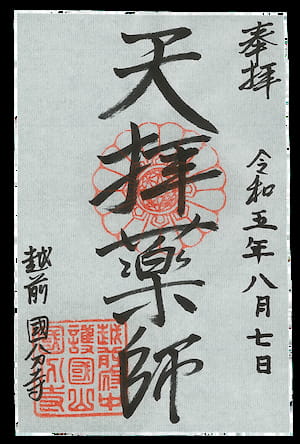 奉拝
令和五年八月七日
天拝薬師
越前府中
護國山
國分寺
越前 國分寺